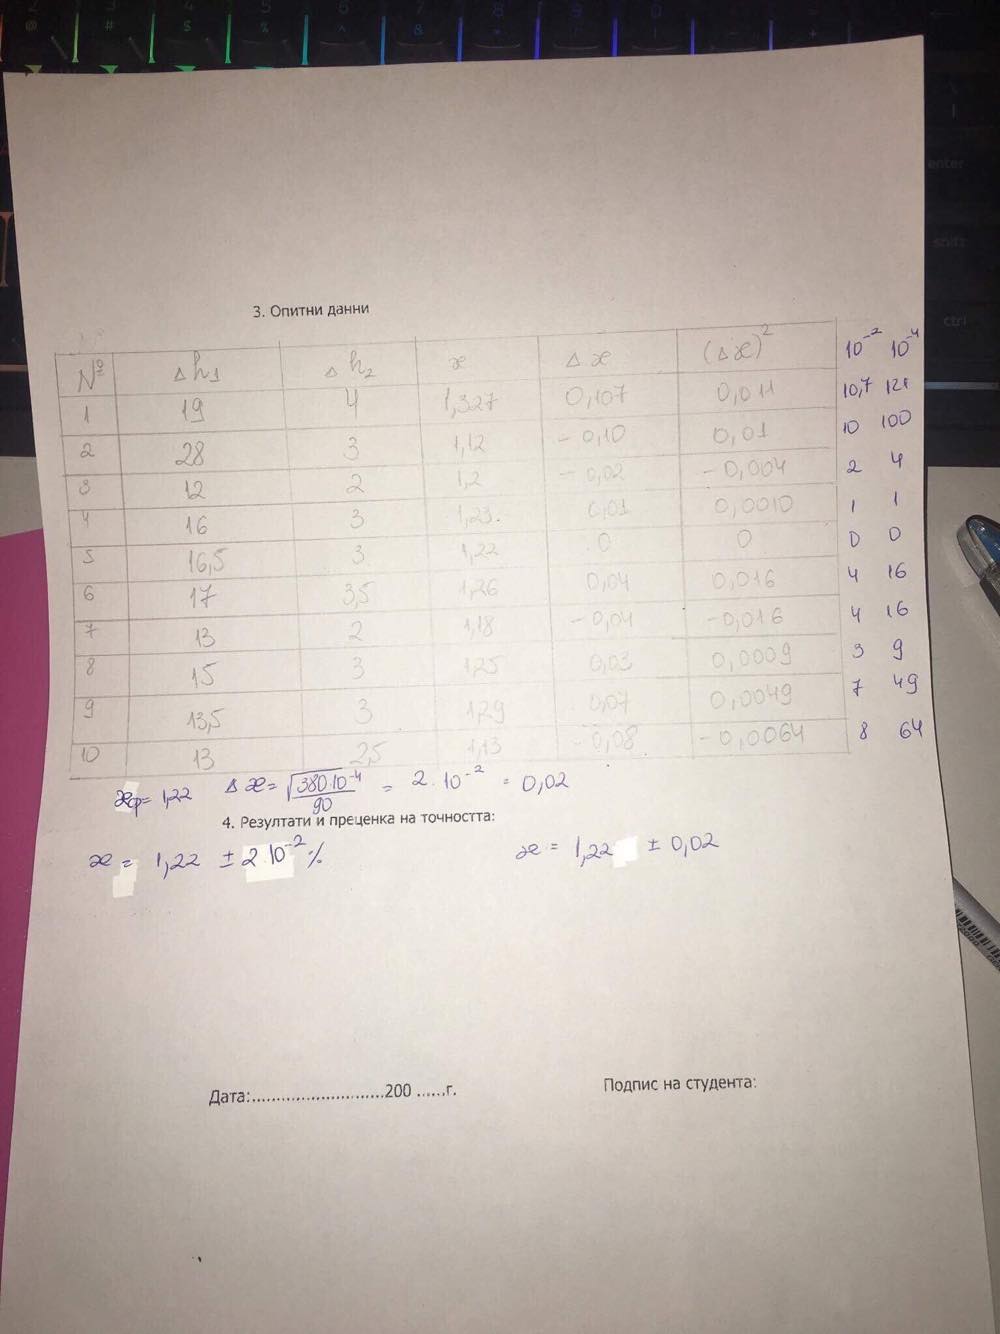 3. Опитни данни
№ Δh₁ Δh₂ æ Δæ (Δæ)² 10⁻² 10⁻⁴
1 19 4 1,327 0,107 0,011 10,7 121
2 28 3 1,12 -0,10 0,01 10 100
3 12 2 1,2 -0,02 -0,004 2 4
4 16 3 1,23 0,01 0,0010 1 1
5 16,5 3 1,22 0 0 0 0
6 17 3,5 1,26 0,04 0,016 4 16
7 13 2 1,18 -0,04 -0,016 4 16
8 15 3 1,25 0,03 0,0009 3 9
9 13,5 3 1,29 0,07 0,0049 7 49
10 13 2,5 1,13 -0,08 -0,0064 8 64
æср = 1,22 Δæ = √380·10⁻⁴/90 = 2·10⁻² = 0,02
4. Резултати и преценка на точността:
æ = 1,22 ± 2·10⁻² % æ = 1,22 ± 0,02
Дата:...........................200 ......г. Подпис на студента:
enter
shift
ctrl